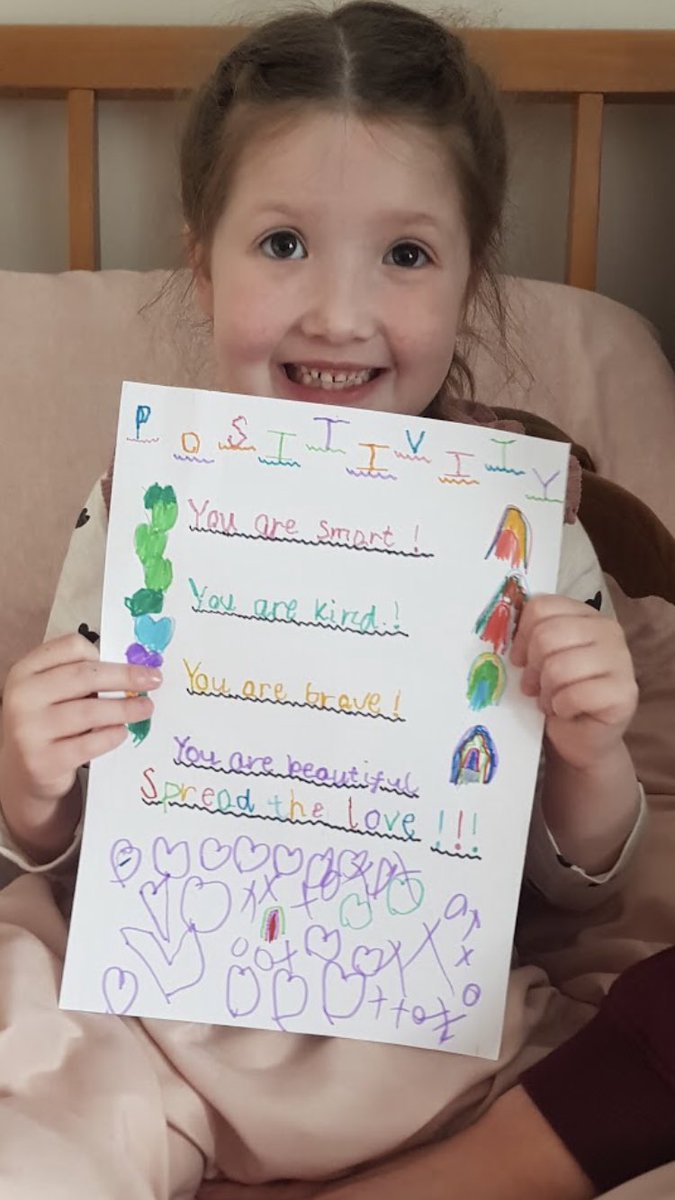 POSITIVITY
You are smart!
You are kind!
You are brave!
You are beautiful
Spread the love !!!